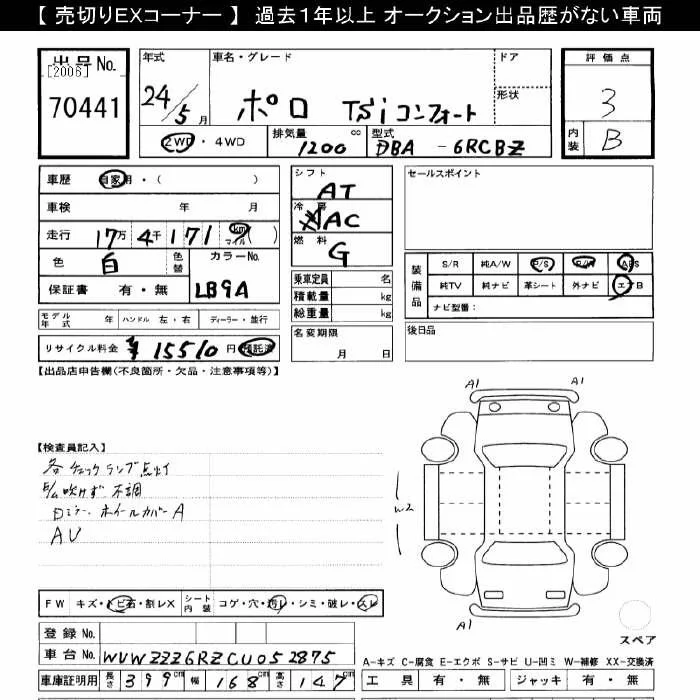 【 売切りEXコーナー 】 過去１年以上 オークション出品歴がない車両
出品No. [2006] 70441
年式 24/5月
車名・グレード ポロ TSiコンフォート
ドア
形状
2WD・4WD 排気量 1200 cc 型式 DBA - 6RCBZ
評価点 3
内装 B
車歴 自家用・( )
車検 年 月
走行 17万 4千 171 km マイル ( )
色 白 色替 カラーNo. LB9A
保証書 有・無
モデル年式 年 ハンドル 左・右 ディーラー・並行
リサイクル料金 ¥15510 円 預託済
シフト AT
冷房 AC
燃料 G
乗車定員 名
積載量 kg
総重量 kg
名変期限 月 日
セールスポイント
装備品 S/R 純A/W P/S P/W ABS
純TV 純ナビ 革シート 外ナビ エアB
ナビ型番：
後日品
【出品店申告欄(不良箇所・欠品・注意事項等)】
【検査員記入】
各チェックランプ点灯
吹けず 不調
ホイールカバーA
AU
A1 A1
W2
A1
スペア
FW キズ・トビ石・割レX シート内装 コゲ・穴・汚レ・シミ・破レ・スレ
登録No.
車台No. WVWZZZ6RZCU052875
車庫証明用 長さ 399cm 幅 168cm 高さ 147cm
A-キズ C-腐食 E-エクボ S-サビ U-凹ミ W-補修 XX-交換済
工具 有・無 ジャッキ 有・無